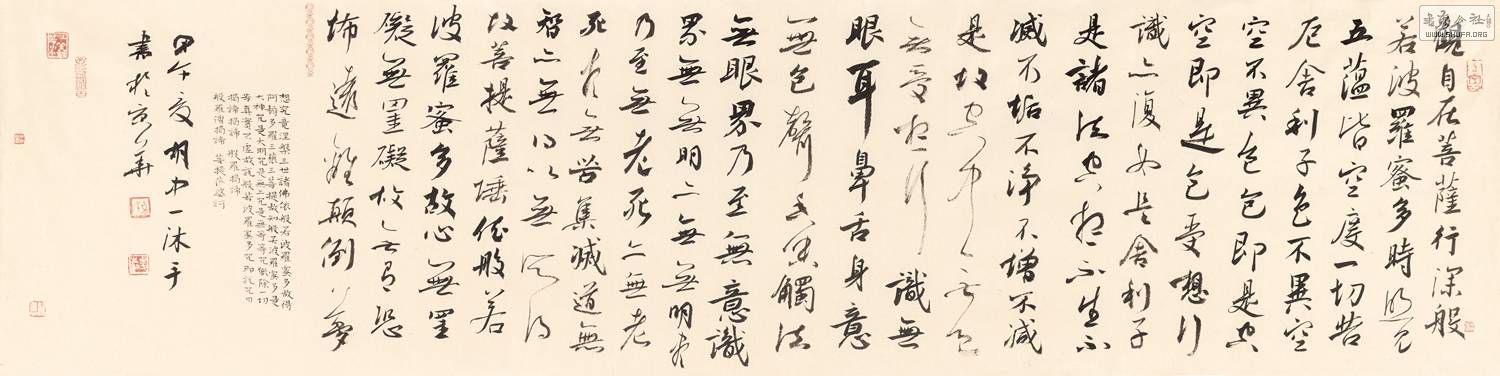 觀自在菩薩行深般
若波羅蜜多時照見
五蘊皆空度一切苦
厄舍利子色不異空
空不異色色即是空
空即是色受想行
識亦復如是舍利子
是諸法空相不生不
滅不垢不淨不增不減
是故空中無色
無受想行識無
眼耳鼻舌身意
無色聲香味觸法
無眼界乃至無意識
界無無明亦無無明盡
乃至無老死亦無老
死盡無苦集滅道無
智亦無得以無所得
故菩提薩埵依般若
波羅蜜多故心無罣
礙無罣礙故無有恐
怖遠離顛倒夢
想究竟涅槃三世諸佛依般若波羅蜜多故得
阿耨多羅三藐三菩提故知般若波羅蜜多是
大神咒是大明咒是無上咒是無等等咒能除一切
苦真實不虛故說般若波羅蜜多咒即說咒曰
揭諦揭諦 般羅揭諦
般羅僧揭諦 菩提薩婆訶
甲午夏明中一沐手
書於京華
WWW.SHUFA.ORG